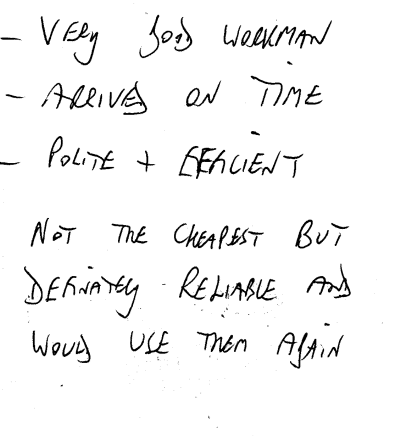 - VERY GOOD WORKMAN
- ARRIVED ON TIME
- POLITE + EFFICIENT
NOT THE CHEAPEST BUT
DEFINATELY RELIABLE AND
WOULD USE THEM AGAIN